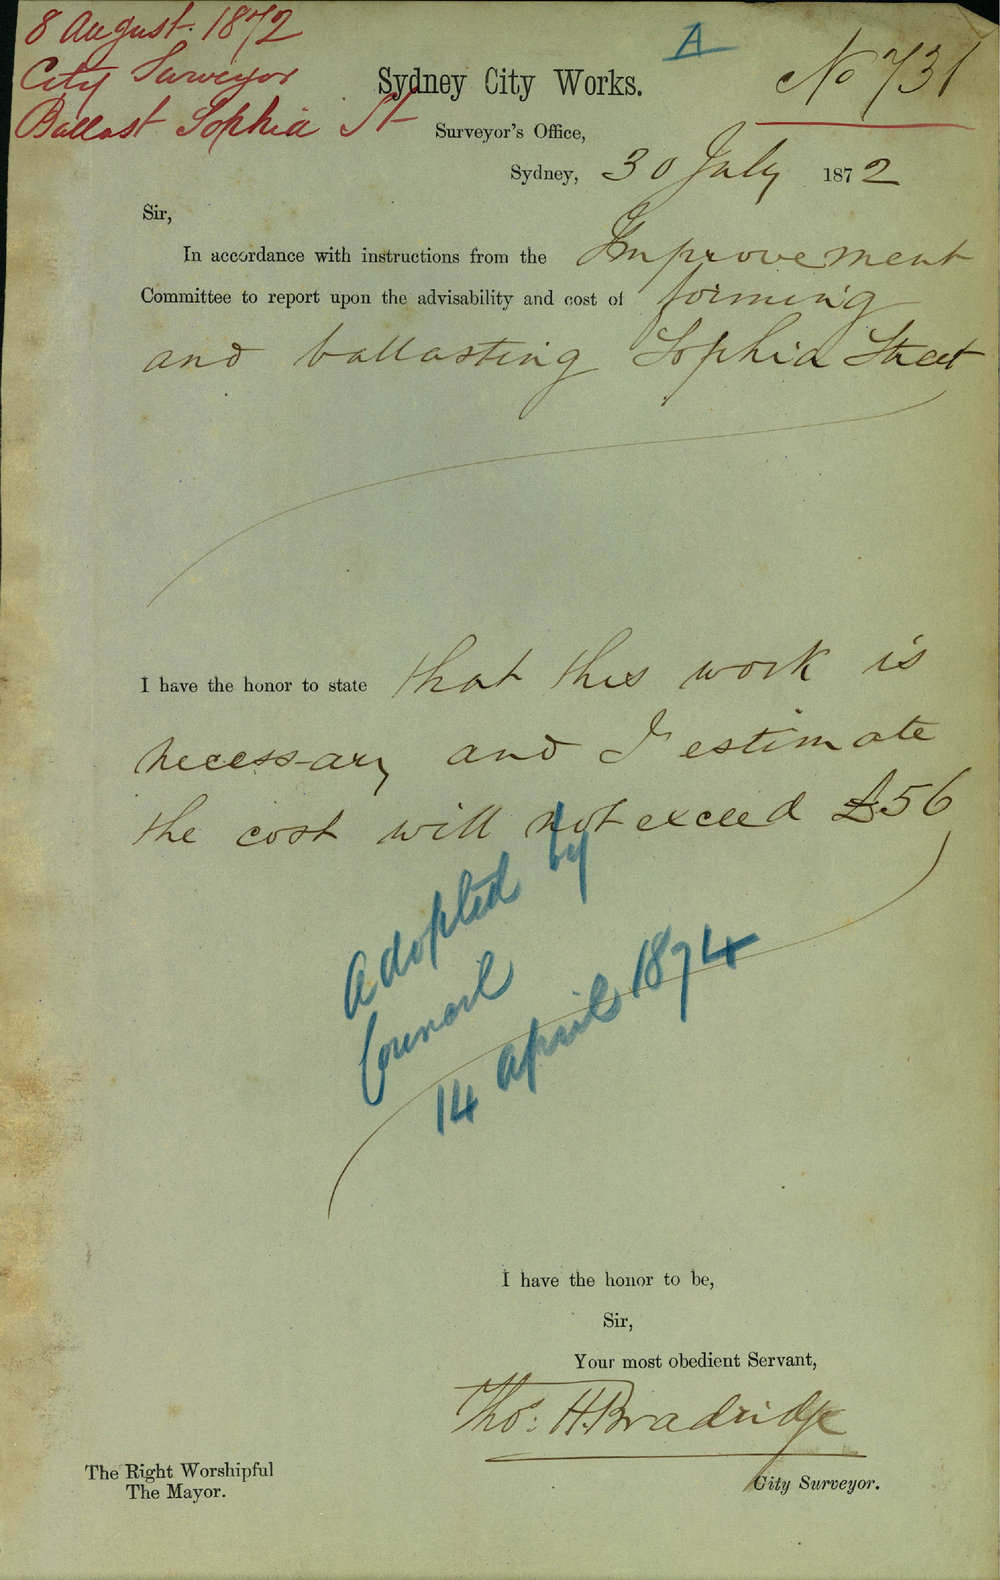 8 August. 1872
City Surveyor
Ballast Sophia St
A
No 731
Sydney City Works.
Surveyor's Office,
Sydney, 30 July 1872
Sir,
In accordance with instructions from the Improvement
Committee to report upon the advisability and cost of forming
and ballasting Sophia Street
I have the honor to state that this work is
necessary and I estimate
the cost will not exceed £56
Adopted by
Council
14 April 1874
I have the honor to be,
Sir,
Your most obedient Servant,
Thos. H. Bradridge
City Surveyor.
The Right Worshipful
The Mayor.